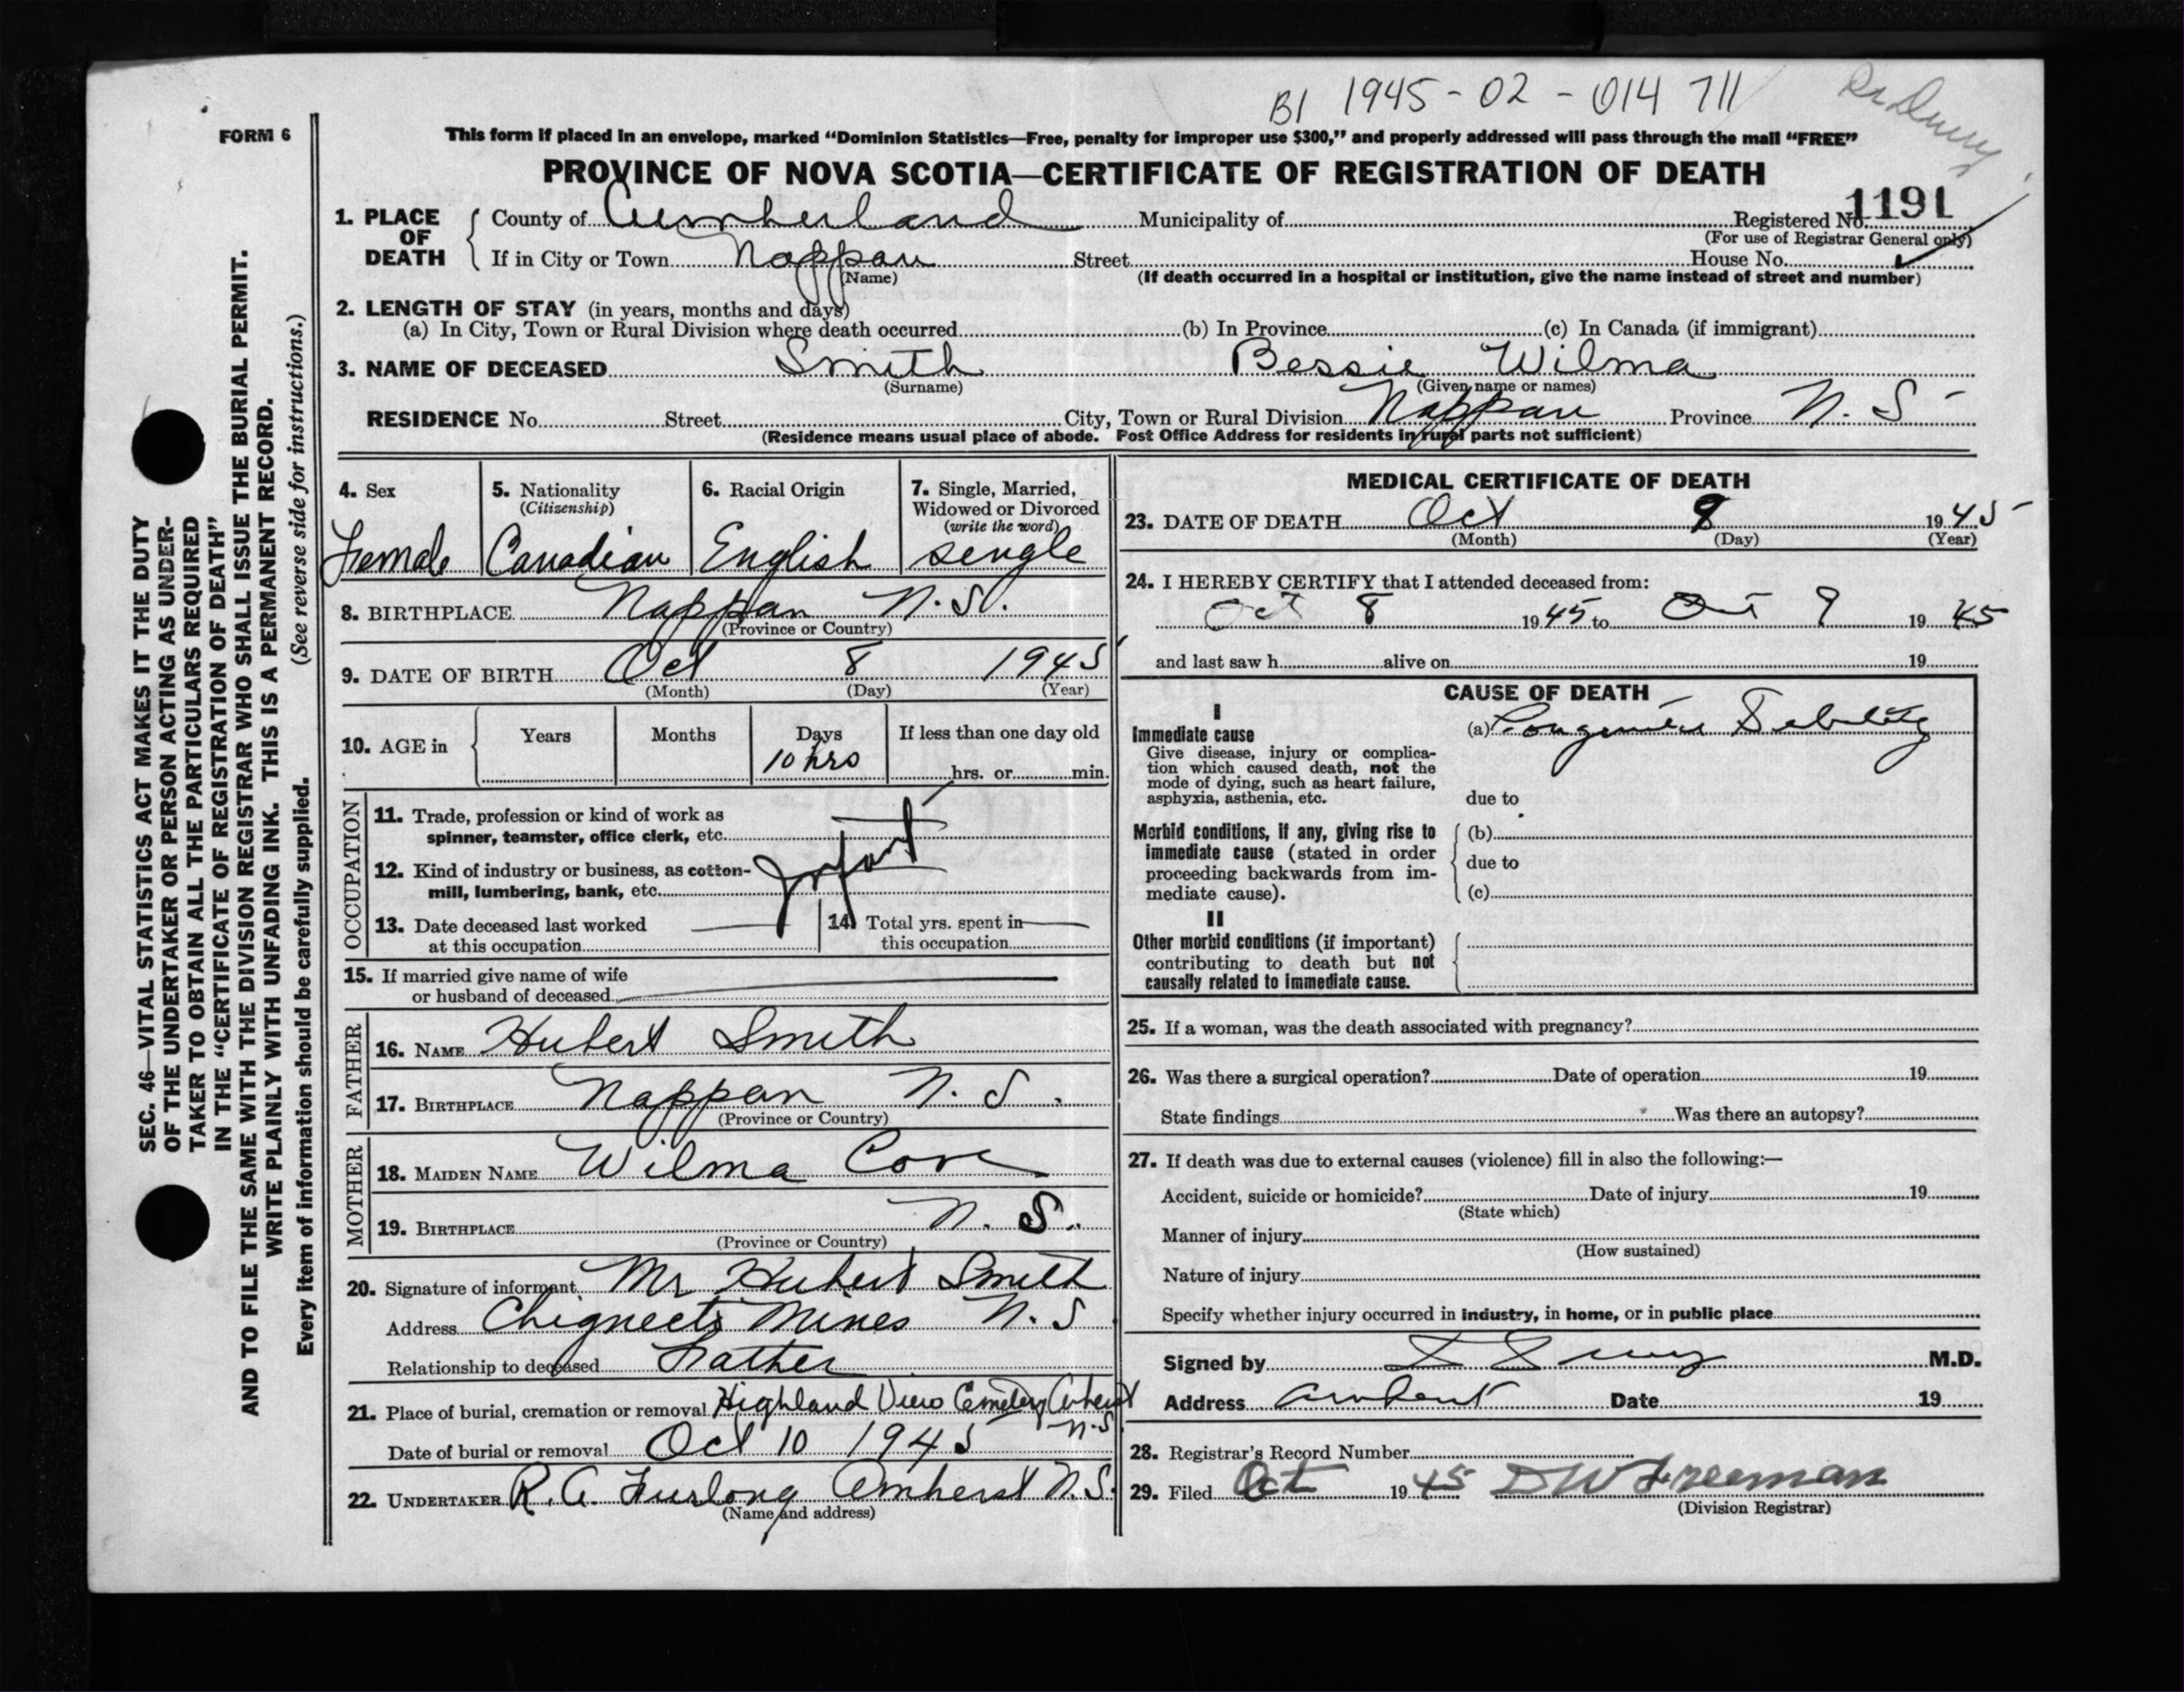 B1 1945-02-014 711
Dr Drury
FORM 6
This form if placed in an envelope, marked "Dominion Statistics—Free, penalty for improper use $300," and properly addressed will pass through the mail "FREE"
PROVINCE OF NOVA SCOTIA—CERTIFICATE OF REGISTRATION OF DEATH
1. PLACE OF DEATH
County of Cumberland Municipality of Registered No. 1191
(For use of Registrar General only)
If in City or Town Nappan Street House No.
(Name) (If death occurred in a hospital or institution, give the name instead of street and number)
2. LENGTH OF STAY (in years, months and days)
(a) In City, Town or Rural Division where death occurred (b) In Province (c) In Canada (if immigrant)
3. NAME OF DECEASED Smith Bessie Wilma
(Surname) (Given name or names)
RESIDENCE No. Street City, Town or Rural Division Nappan Province N. S
(Residence means usual place of abode. Post Office Address for residents in rural parts not sufficient)
4. Sex
Female
5. Nationality
(Citizenship)
Canadian
6. Racial Origin
English
7. Single, Married,
Widowed or Divorced
(write the word)
single
8. BIRTHPLACE Nappan N.S.
(Province or Country)
9. DATE OF BIRTH Oct 8 1945
(Month) (Day) (Year)
10. AGE in Years Months Days If less than one day old
10 hrs
hrs. or min.
OCCUPATION
11. Trade, profession or kind of work as
spinner, teamster, office clerk, etc.
12. Kind of industry or business, as cotton-
mill, lumbering, bank, etc.
Infant
13. Date deceased last worked
at this occupation
14. Total yrs. spent in
this occupation
15. If married give name of wife
or husband of deceased
FATHER
16. NAME Hubert Smith
17. BIRTHPLACE Nappan N. S.
(Province or Country)
MOTHER
18. MAIDEN NAME Wilma Cove
19. BIRTHPLACE N. S.
(Province or Country)
20. Signature of informant Mr Hubert Smith
Address Chignecto Mines N.S
Relationship to deceased Father
21. Place of burial, cremation or removal Highland View Cemetery Amherst
N.S.
Date of burial or removal Oct 10 1945
22. UNDERTAKER R. A. Furlong Amherst N.S.
(Name and address)
MEDICAL CERTIFICATE OF DEATH
23. DATE OF DEATH Oct 9 1945
(Month) (Day) (Year)
24. I HEREBY CERTIFY that I attended deceased from:
Oct 8 1945 to Oct 9 1945
and last saw h alive on 19
CAUSE OF DEATH
I
Immediate cause
Give disease, injury or complica-
tion which caused death, not the
mode of dying, such as heart failure,
asphyxia, asthenia, etc.
(a) Congenital Debility
due to
Morbid conditions, if any, giving rise to
immediate cause (stated in order
proceeding backwards from im-
mediate cause).
(b)
due to
(c)
II
Other morbid conditions (if important)
contributing to death but not
causally related to immediate cause.
25. If a woman, was the death associated with pregnancy?
26. Was there a surgical operation? Date of operation 19
State findings Was there an autopsy?
27. If death was due to external causes (violence) fill in also the following:—
Accident, suicide or homicide? Date of injury 19
(State which)
Manner of injury
(How sustained)
Nature of injury
Specify whether injury occurred in industry, in home, or in public place
Signed by M.D.
Address Amherst Date 19
28. Registrar's Record Number
29. Filed Oct 1945 D W Freeman
(Division Registrar)
SEC. 46—VITAL STATISTICS ACT MAKES IT THE DUTY
OF THE UNDERTAKER OR PERSON ACTING AS UNDER-
TAKER TO OBTAIN ALL THE PARTICULARS REQUIRED
IN THE "CERTIFICATE OF REGISTRATION OF DEATH"
AND TO FILE THE SAME WITH THE DIVISION REGISTRAR WHO SHALL ISSUE THE BURIAL PERMIT.
WRITE PLAINLY WITH UNFADING INK. THIS IS A PERMANENT RECORD.
Every item of information should be carefully supplied. (See reverse side for instructions.)